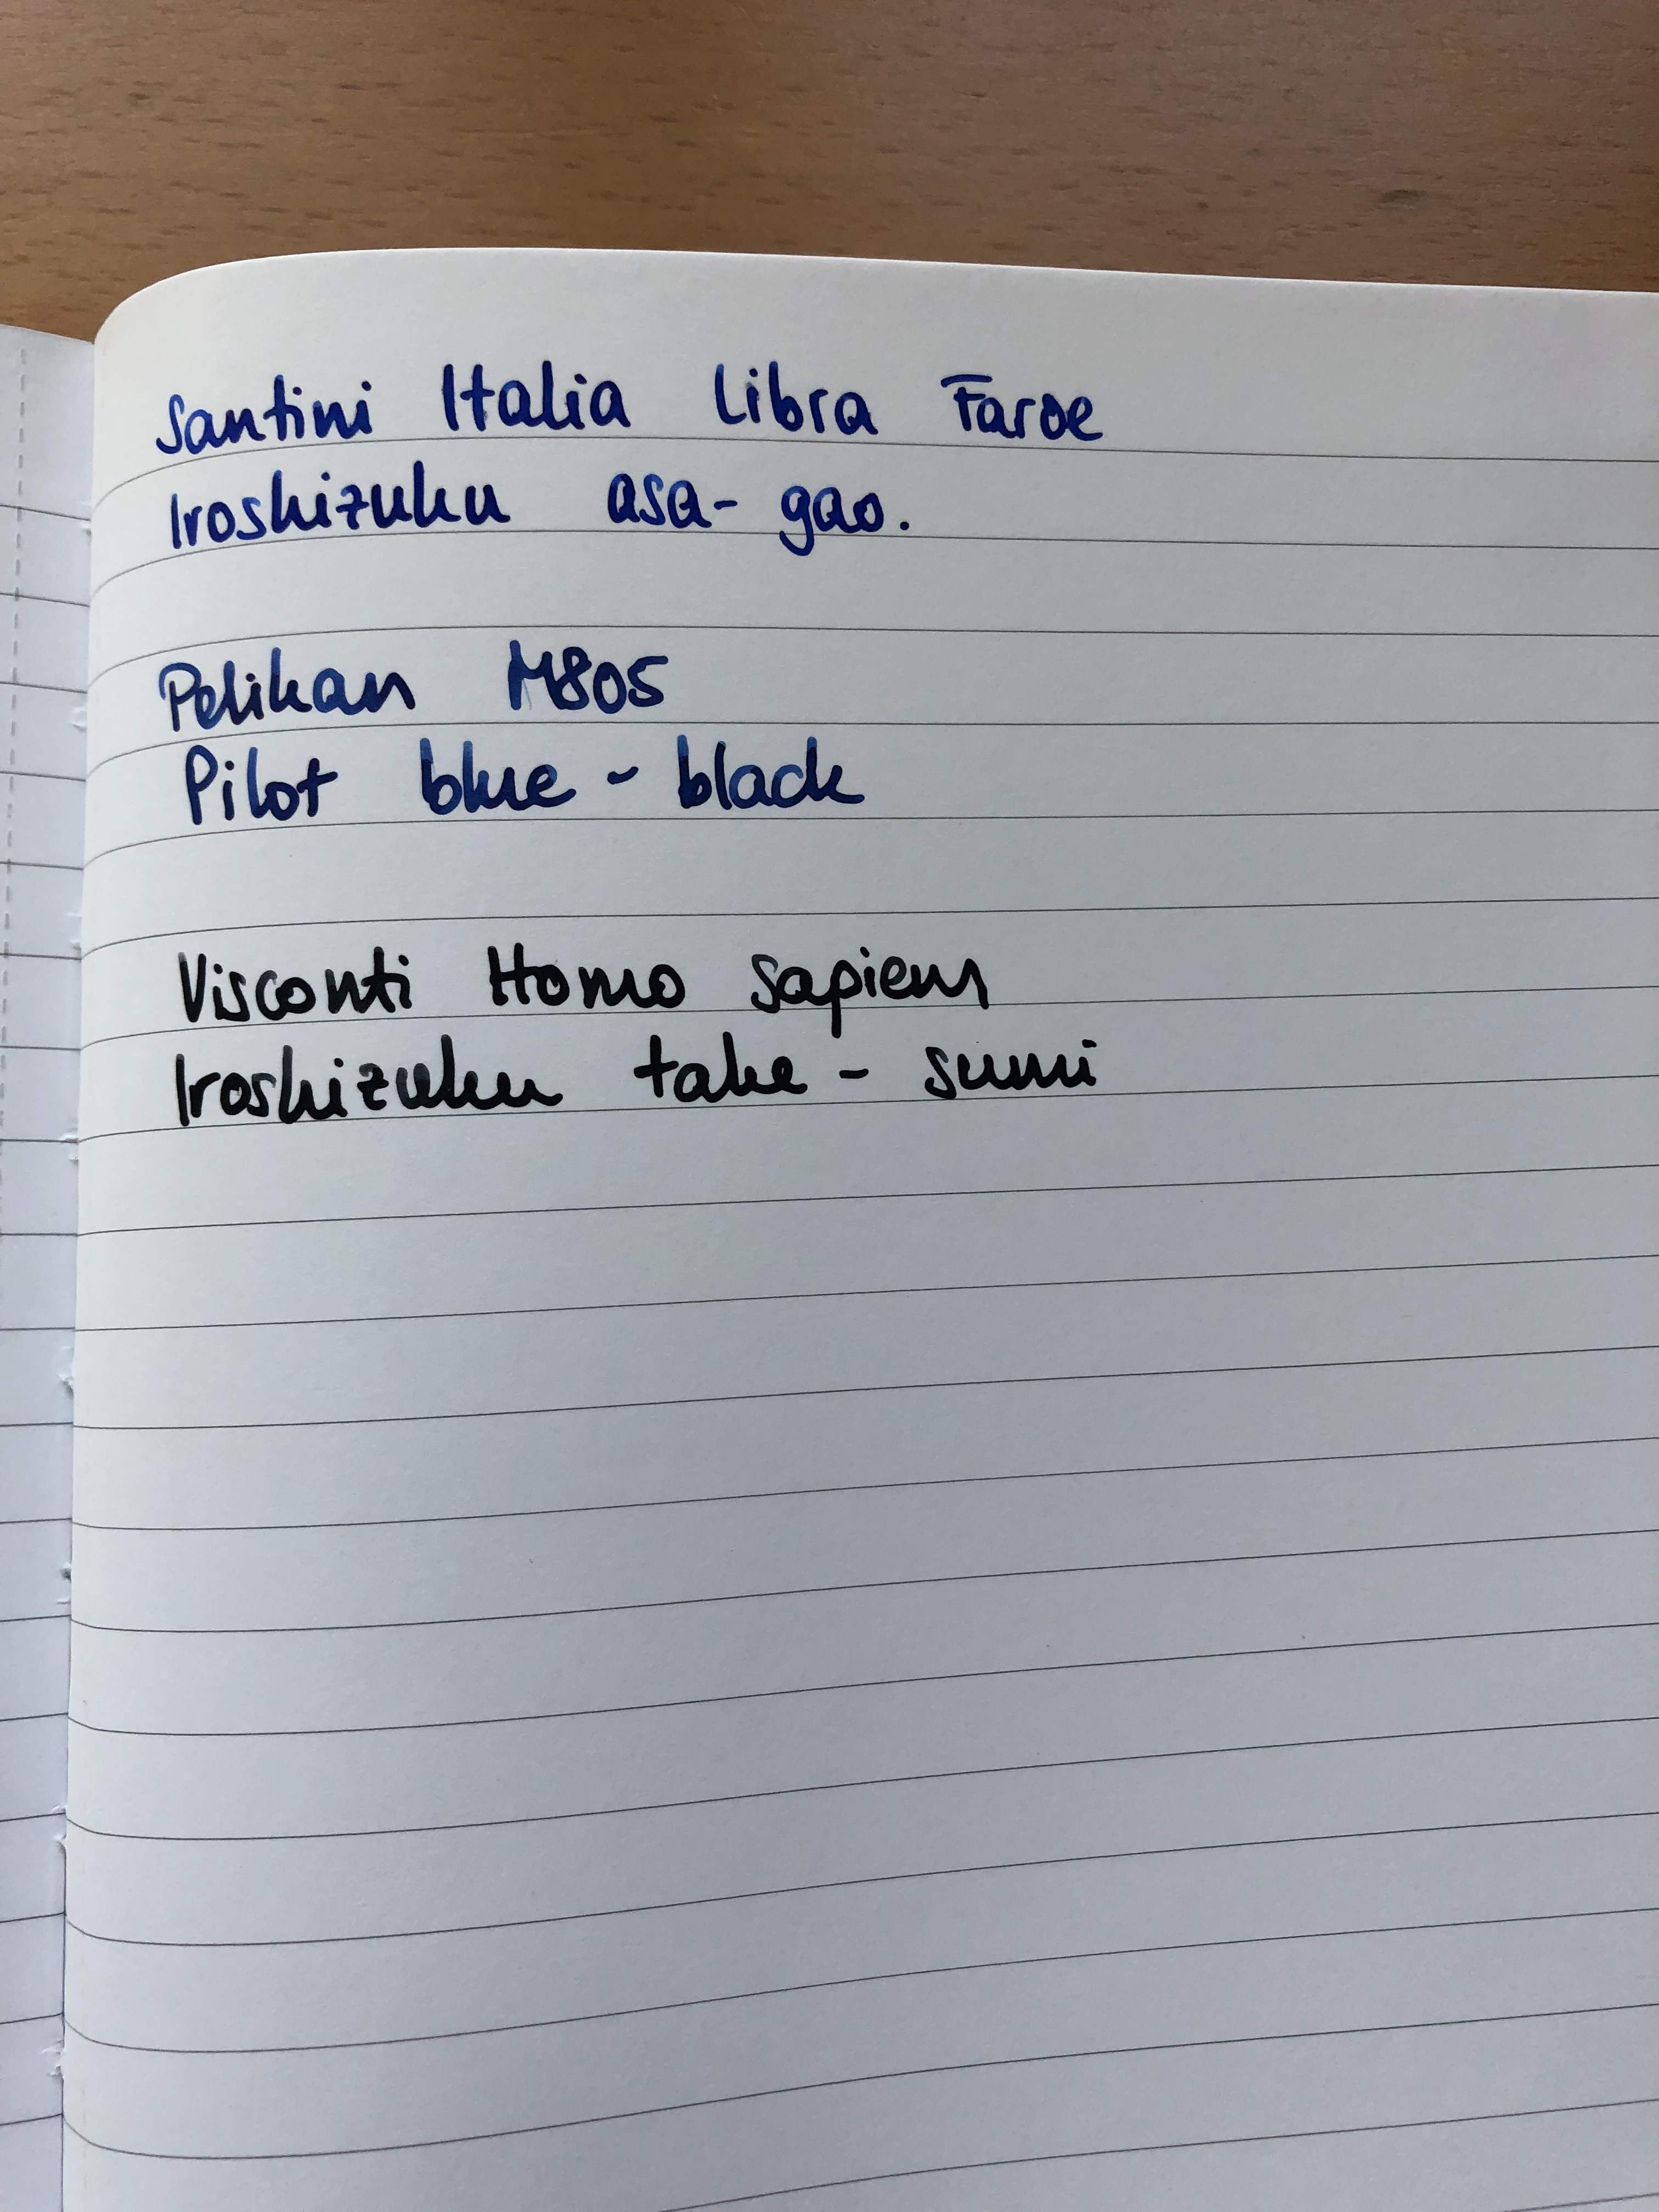 Santini Italia Libra Faroe
Iroshizuku asa-gao.
Pelikan M805
Pilot blue-black
Visconti Homo sapiens
Iroshizuku take-sumi